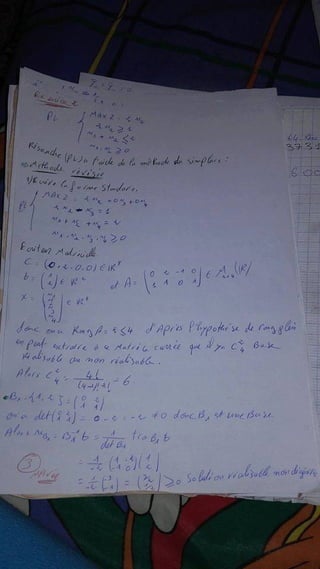 Exercice 2
PL { MAX Z = 2 x2
2 x2 ≥ 1
x1 + x2 ≤ 2
x1, x2 ≥ 0
Résoudre (PL) a l'aide de la méthode du simplexe :
Méthode révisée
1/ Ecrire la forme Standard.
PL { MAX Z = 2 x2 + 0x3 + 0x4
2 x2 - x3 = 1
x1 + x2 + x4 = 2
x1, x2, x3, x4 ≥ 0
Ecriture Matricielle
C = (0, 2, 0, 0) ∈ IR⁴
b = (1 2) ∈ IR² et A = (0 2 -1 0 / 1 1 0 1) ∈ M (IR)
x = (x1 x2 x3 x4) ∈ IR⁴
donc on a Rang A = 2 ≤ 4 d'Après l'hypothèse de rang plein
on peut extraire a la Matrice carrée que il y a C²₄ Base
réalisable ou non réalisable.
Alors C²₄ = 4! / (4-2)! 2! = 6
B1 = {1, 2} = (0 2 / 1 1)
on a det (0 2 / 1 1) = 0 - 2 = -2 ≠ 0 donc B1 est une Base
Alors xB1 = B1⁻¹ b = 1/det B1
= 1/-2 (1 -2 / -1 0) (1 2)
= 1/-2 (-3 -1) = (3/2 1/2) ≥ 0 Solution réalisable non dégénérée
3